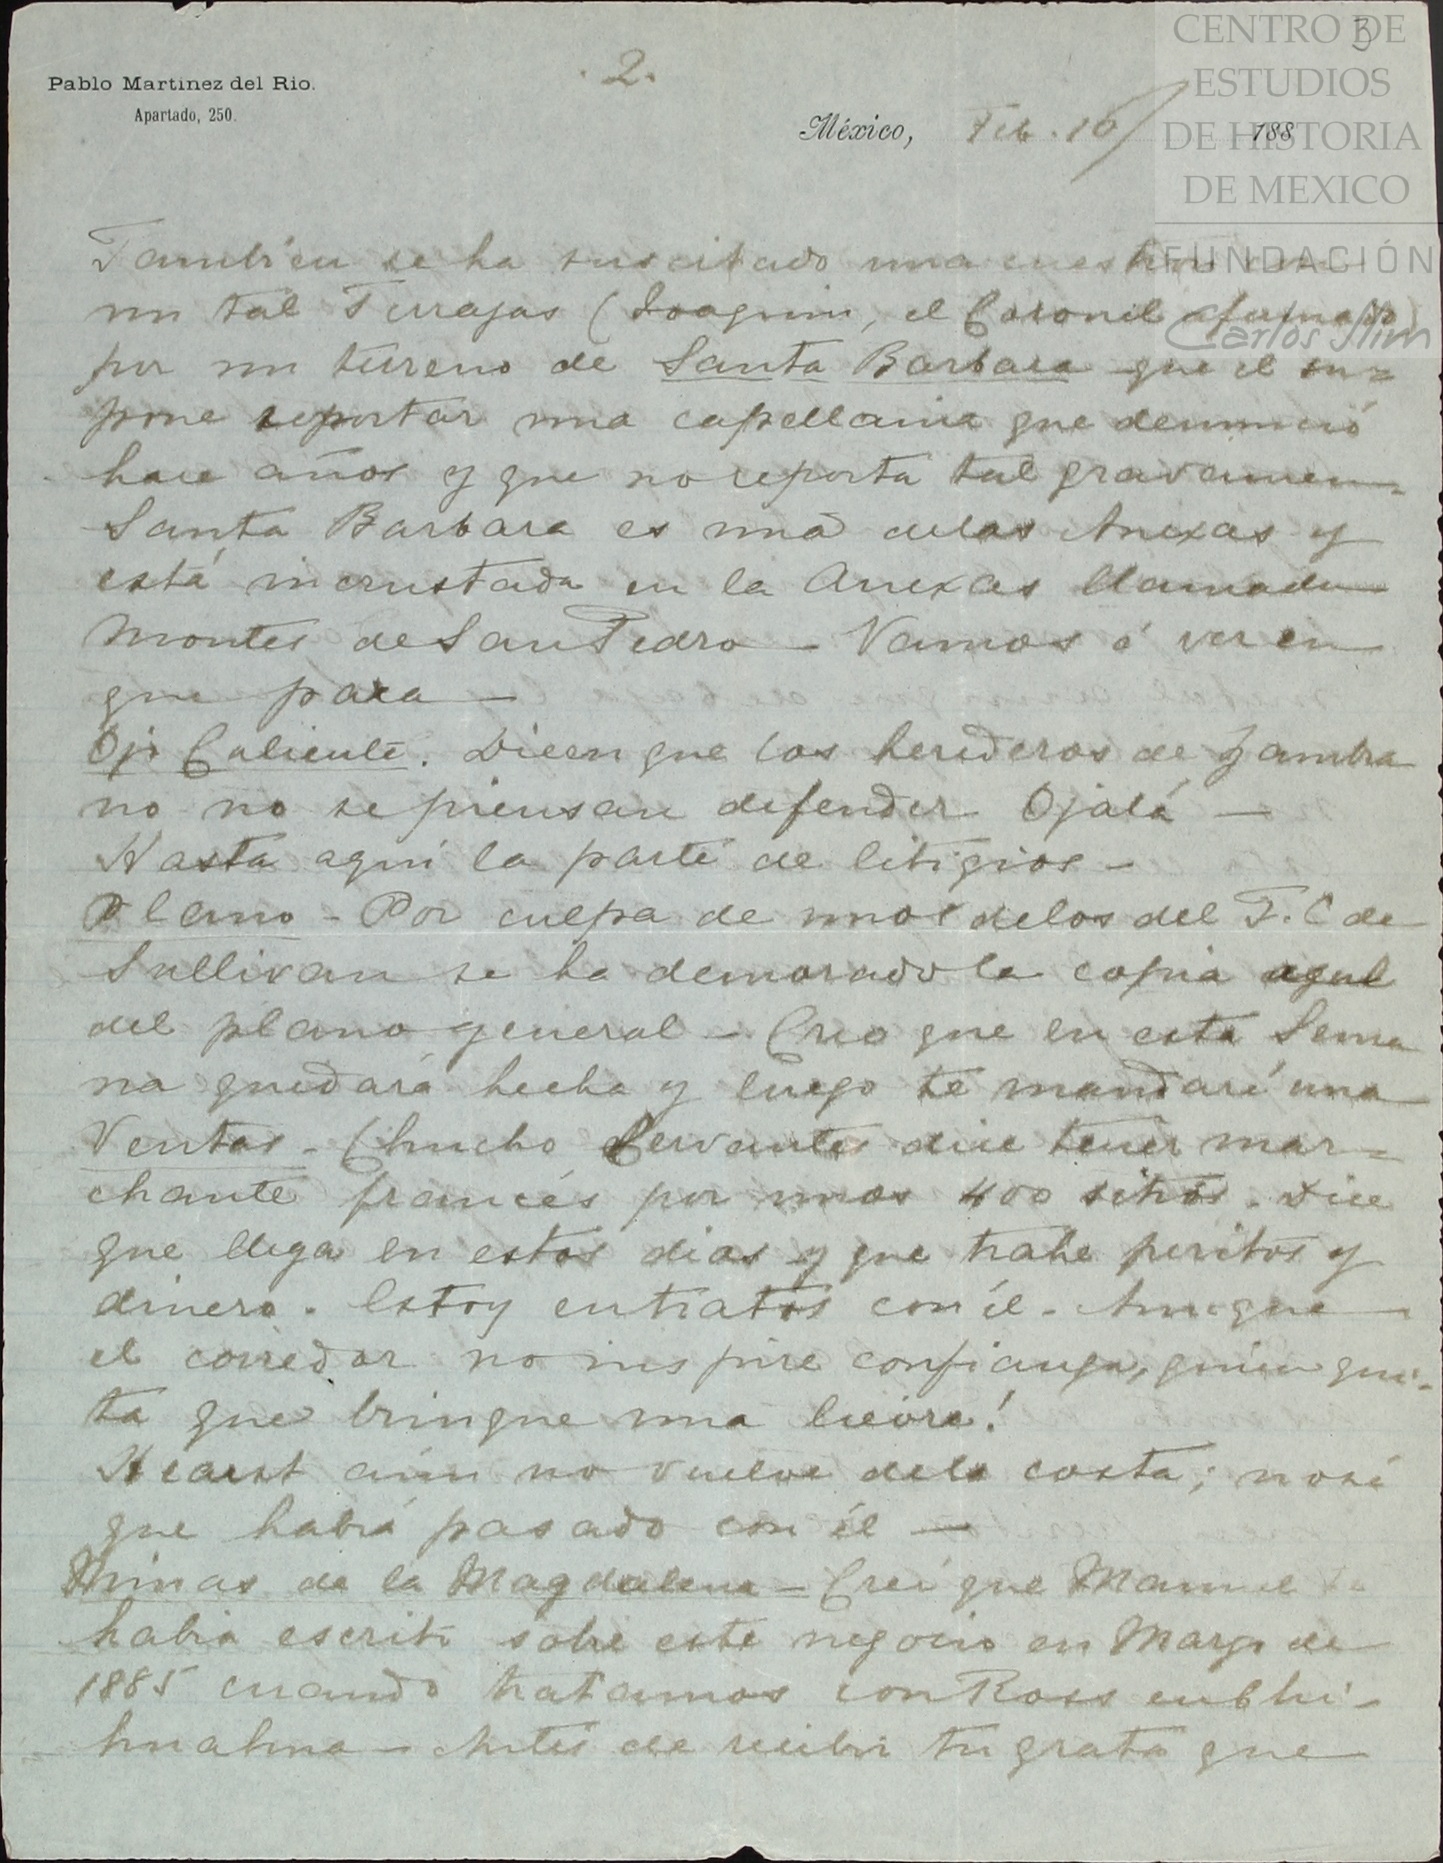 CENTRO DE
ESTUDIOS
DE HISTORIA
DE MEXICO
FUNDACIÓN
Carlos Slim
3
Pablo Martinez del Rio.
Apartado, 250.
. 2.
México, Feb. 16/ 188
Tambien se ha suscitado una cuestion con
un tal Terrazas (Joaquin, el Coronel afamado)
por un terreno de Santa Barbara que el su=
pone reportar una capellania que denunció
hace años y que no reporta tal gravamen_
Santa Barbara es una delas Anexas y
está incrustada en la Anexas llamada
Montes de San Pedro - Vamos á ver en
que para -
Ojo Caliente. Dicen que los herederos de Zambra
no no se piensan defender Ojalá -
Hasta aqui la parte de litigios -
Plano - Por culpa de unos delos del F.C de
Sullivan se ha demorado la copia azul
del plano general - Creo que en esta Sema
na quedará hecha y luego te mandaré una
Ventas - Chucho Cervantes dice tener mar=
chante francés por unos 400 sitios. Dice
que llega en estos dias y que trahe peritos y
dinero. Estoy entratos con él - Aunque
el corredor no inspire confianza, quien qui-
ta que brinque una liebre!
Hearst aún no vuelve dela costa; no sé
que habrá pasado con él -
Minas de la Magdalena - Creí que Manuel te
habia escrito sobre este negocio en Marzo de
1885 cuando tratamos con Ross en Chi-
huahua - Antes de recibir tu grata que